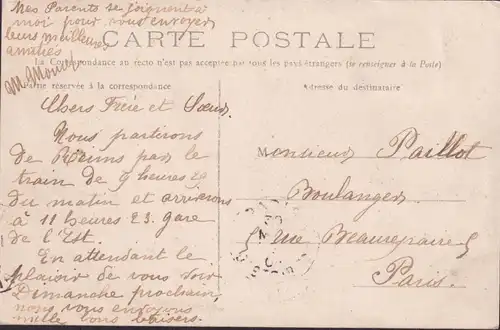 Mes Parents se joignent à
moi pour vous envoyer
leurs meilleures
amitiés
CARTE POSTALE
La Correspondance au recto n'est pas acceptée par tous les pays étrangers (se renseigner à la Poste)
Partie réservée à la correspondance
Adresse du destinataire
Chers Frère et Sœur
Nous partirons
de Reims par le
train de 9 heures 29
du matin et arriverons
à 11 heures 23. gare
de l'Est.
En attendant le
plaisir de vous voir
Dimanche prochain,
nous vous envoyons
mille bons baisers.
Monsieur Paillot
Boulanger
5 rue Beaurepaire 5
Paris.